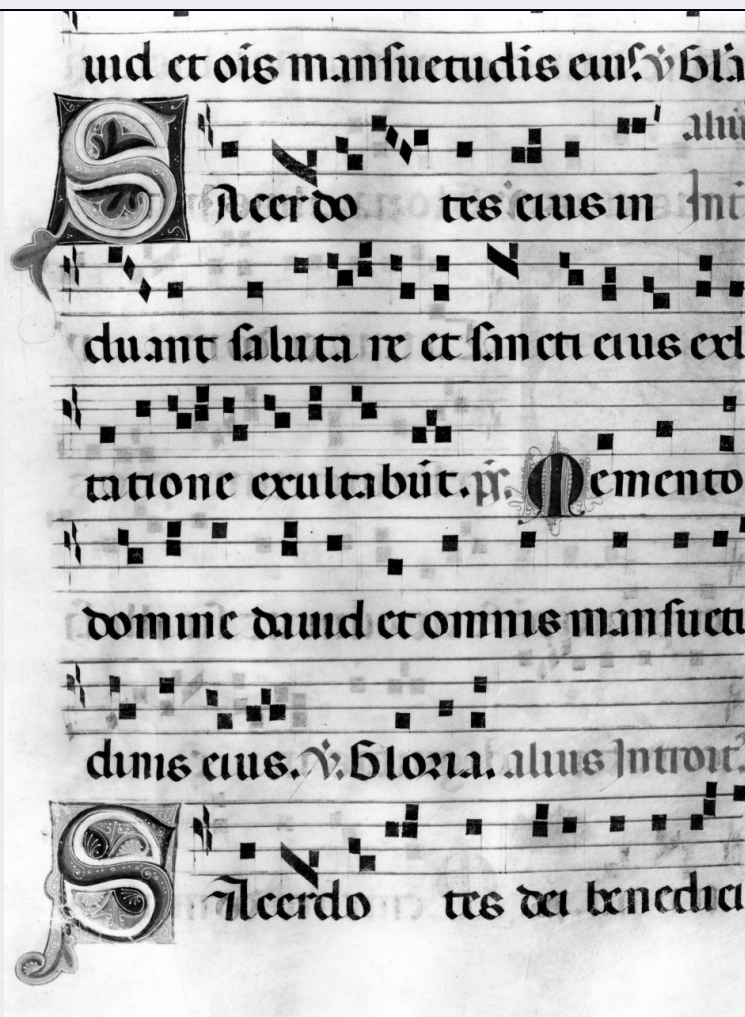 uid et oīs mansuetudis eiuſ. ℣ Glā
aliu
SAcerdo tes eius in Int
duant saluta re et sancti eius exl
tatione exultabūt. p̄s. Memento
domine dauid et omnis mansuetu
dinis eius. ℣. Gloria. alius Introit.
SAcerdo tes dei benedici